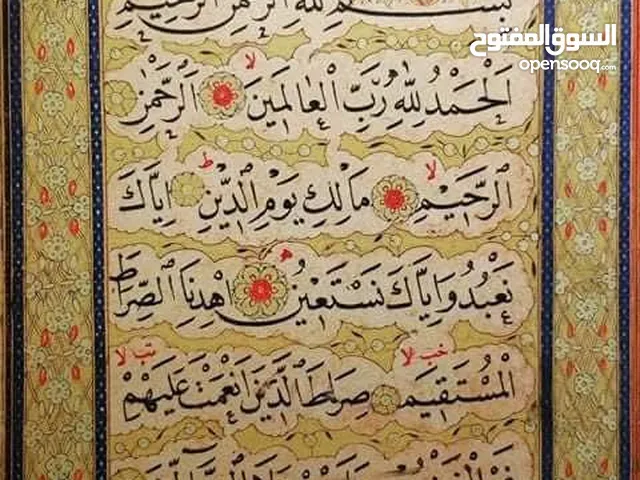 السوق المفتوح
opensooq.com
بِسْمِ اللهِ الرَّحْمٰنِ الرَّحِيمِ
اَلْحَمْدُ لِلّٰهِ رَبِّ الْعَالَمِينَ لا اَلرَّحْمٰنِ
الرَّحِيمِ لا مَالِكِ يَوْمِ الدِّينِ ط اِيَّاكَ
نَعْبُدُ وَاِيَّاكَ نَسْتَعِينُ اِهْدِنَا الصِّرَاطَ
الْمُسْتَقِيمَ صِرَاطَ الَّذِينَ اَنْعَمْتَ عَلَيْهِمْ